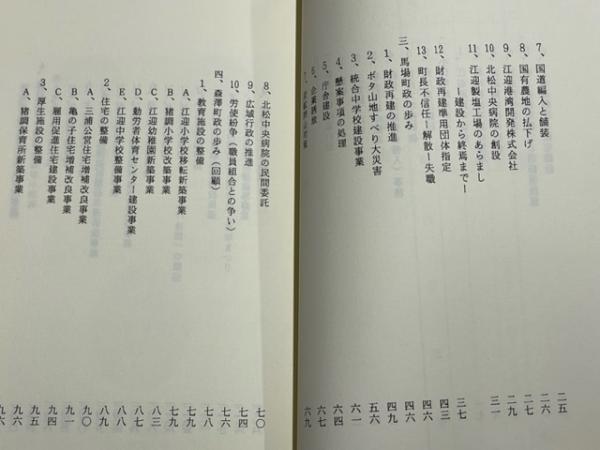 二五
7、国道編入と舗装 二六
8、国有農地の払下げ 二七
9、江迎港湾開発株式会社 二九
10、北松中央病院の創設 三一
11、江迎製塩工場のあらまし
―建設から終焉まで― 三七
12、財政再建準用団体指定 四三
13、町長不信任―解散―失職 四六
三、馬場町政の歩み 四六
1、財政再建の推進 四九
2、ボタ山地すべり大災害 五六
3、統合中学校建設事業 六一
4、懸案事項の処理 六四
5、庁舎建設 六七
6、企業誘致 六九
8、北松中央病院の民間委託 七〇
9、広域行政の推進 七四
10、労使紛争(職員組合との争い) 七六
四、森澤町政の歩み(回顧) 七八
1、教育施設の整備 七九
A、江迎小学校移転新築事業 七九
B、猪調小学校改築事業 八三
C、江迎幼稚園新築事業 八七
D、勤労者体育センター建設事業 八八
E、江迎中学校整備事業 八九
2、住宅の整備 九〇
A、三浦公営住宅増補改良事業 九一
B、亀の子住宅増補改良事業 九四
C、雇用促進住宅建設事業 九五
3、厚生施設の整備 九六
A、猪調保育所新築事業 九六